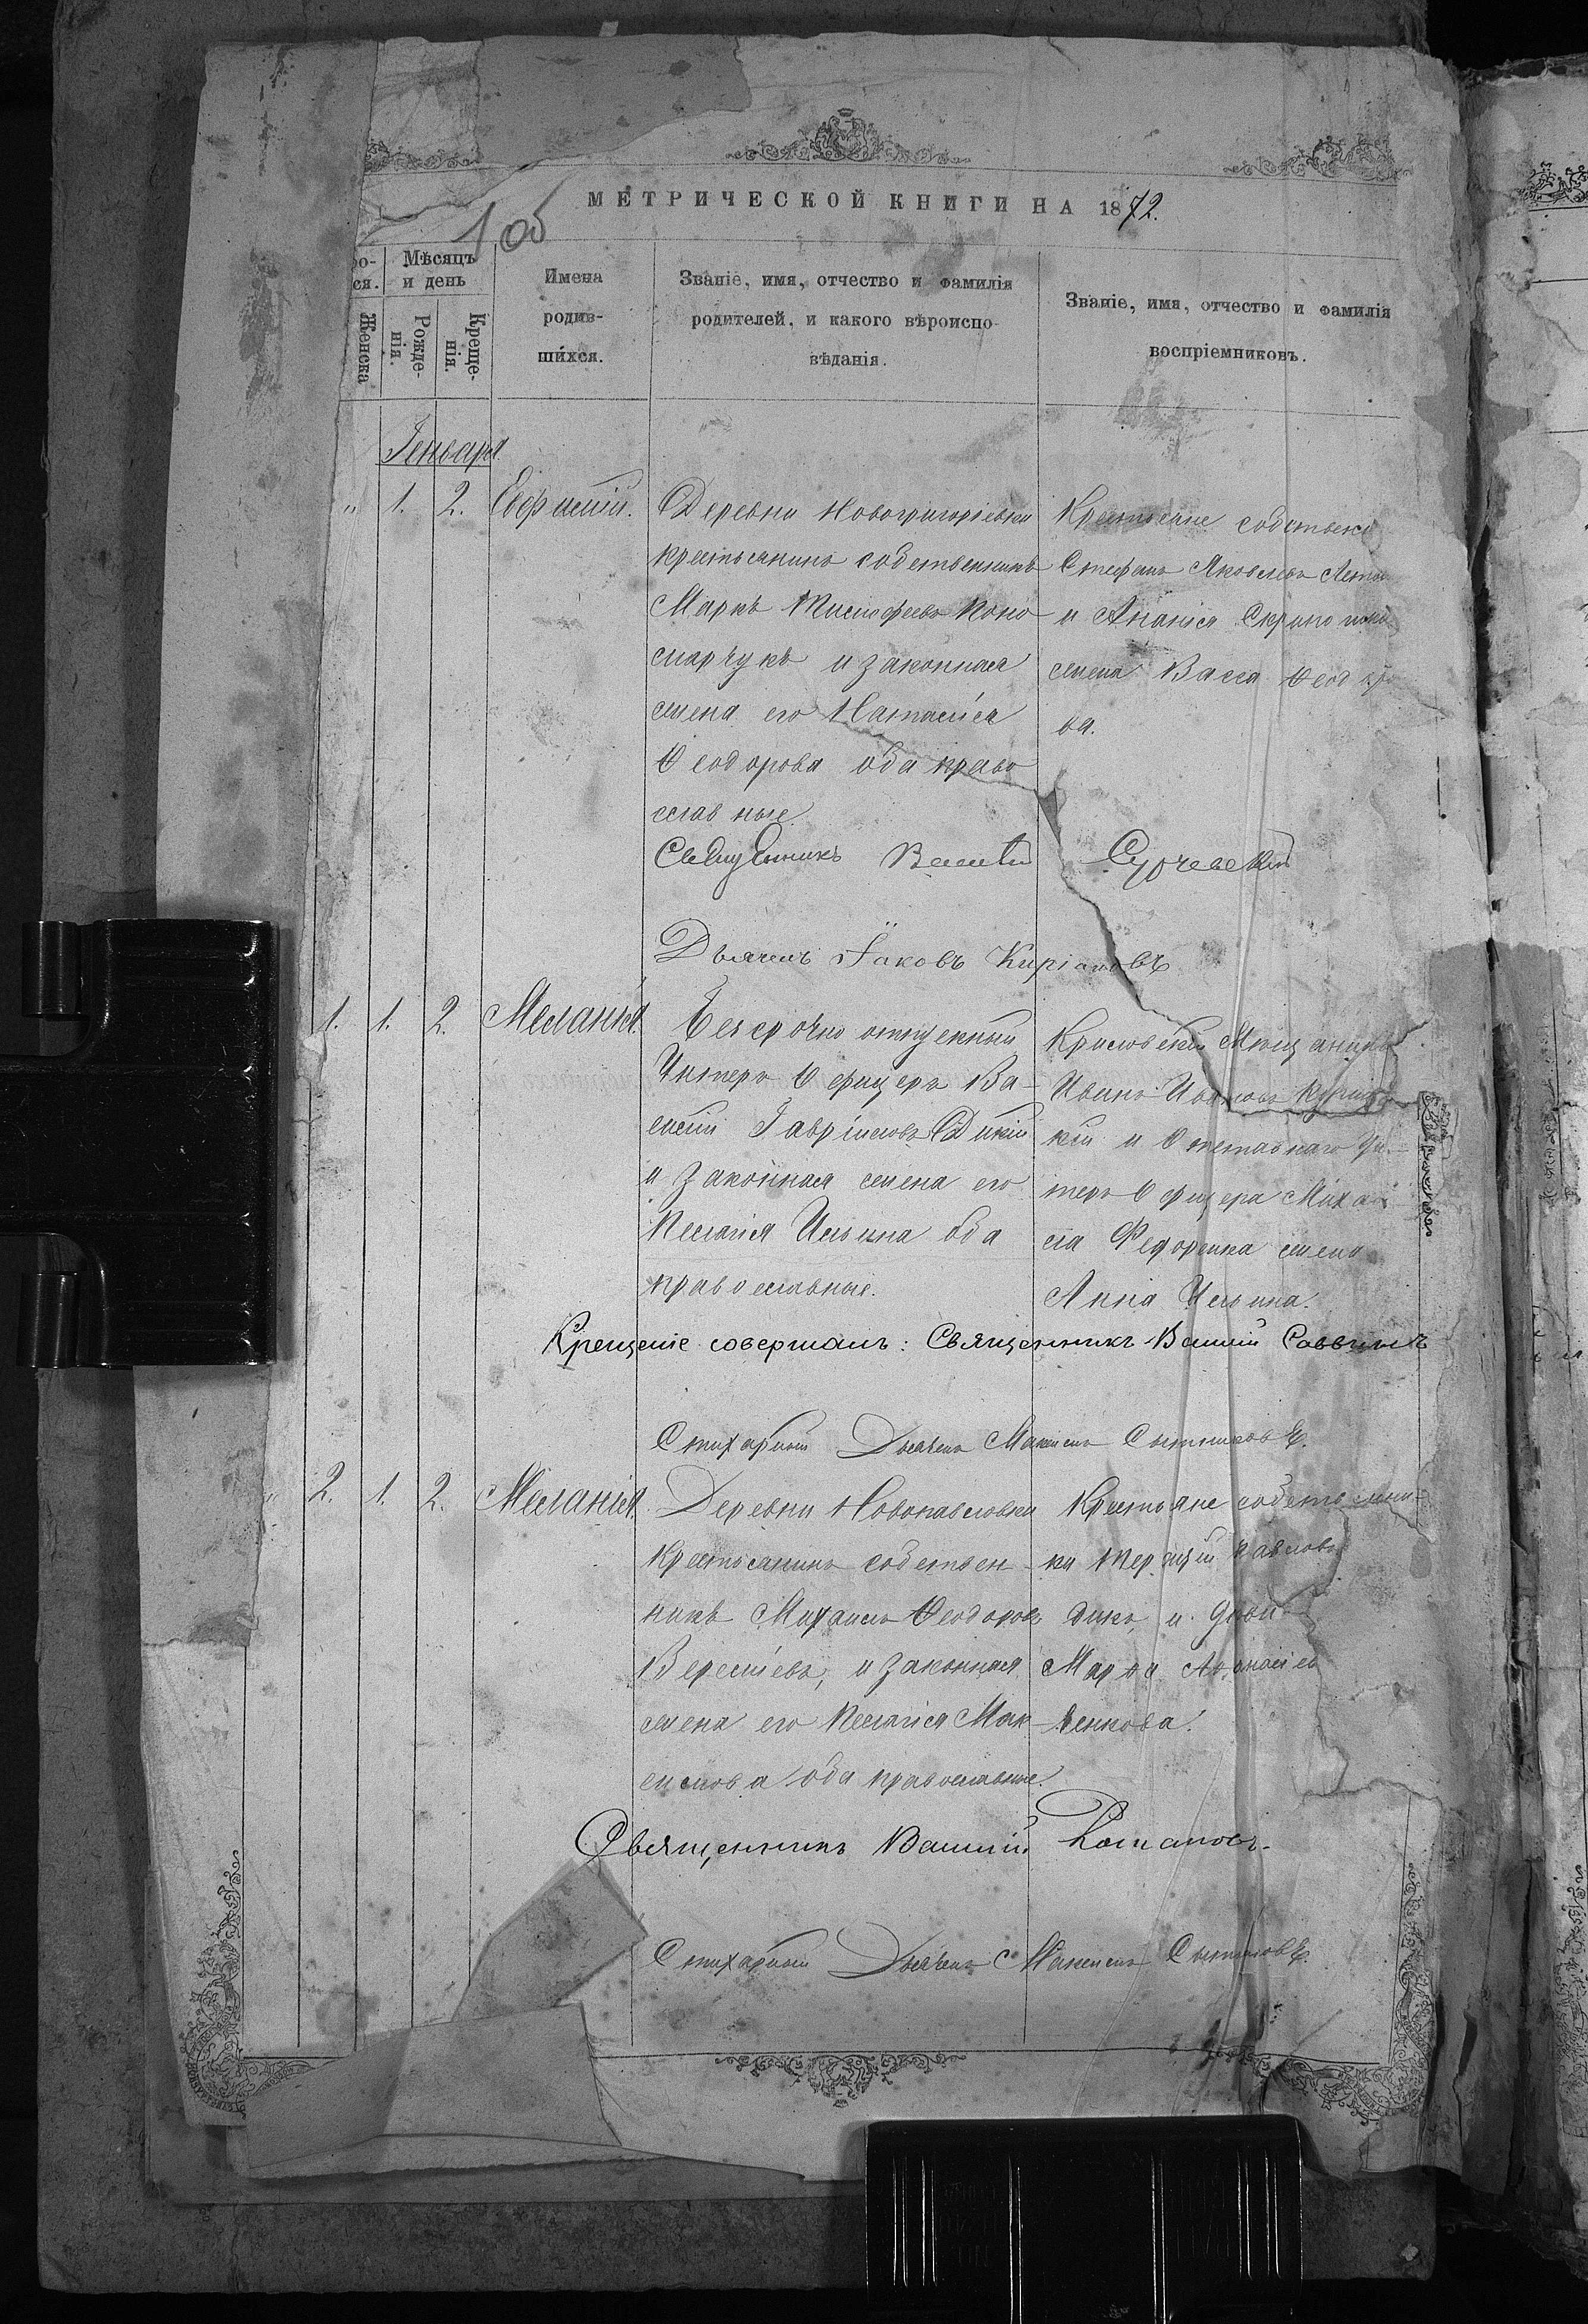 МЕТРИЧЕСКОЙ КНИГИ НА 1872.
1 об
ро-
ся.
Женска
Мѣсяцъ
и день
Рожде-
нія.
Креще-
нія.
Имена
родив-
шихся.
Званіе, имя, отчество и фамилія
родителей, и какого вѣроиспо-
вѣданія.
Званіе, имя, отчество и фамилія
воспріемниковъ.
Генваря
" 1. 2. Евфимій.
Деревни Новогригоріевки
крестьянинъ собственникъ
Маркъ Тимофеевъ Коно
марчукъ и законная
жена его Наталія
Ѳеодорова оба право
славные.
Крестьяне собствен
Стефанъ Яковлевъ
и Ананія
жена Васса Ѳеодоро
ва.
Священникъ Василій
Дьячекъ Іаковъ Киріаковъ
1. 1. 2. Меланія.
Безсрочно отпускный
Унтеръ Офицеръ Ва-
силій Гавріиловъ Дикій
и законная жена его
Пелагія Ильина оба
православные.
Мѣщанинъ
Иванъ Ивановъ
кій и Отставнаго Ун-
теръ Офицера Михаи
ла Федоренка жена
Анна Ильина.
Крещеніе совершалъ: Священникъ Василій Саввинъ
Стихарный Дьячекъ Максимъ Сытниковъ.
" 2. 1. 2. Меланія.
Деревни Новопавловки
Крестьянинъ собствен-
никъ Михаилъ Ѳеодоровъ
и законная
жена его Пелагія Мак-
симова оба православные.
Крестьяне собственни-
ки Терентій Павловъ
Дикъ, и
Марѳа Аѳанасіев
Венкова.
Священникъ Василій Романовъ.
Стихарный Дьячекъ Максимъ Сытниковъ.